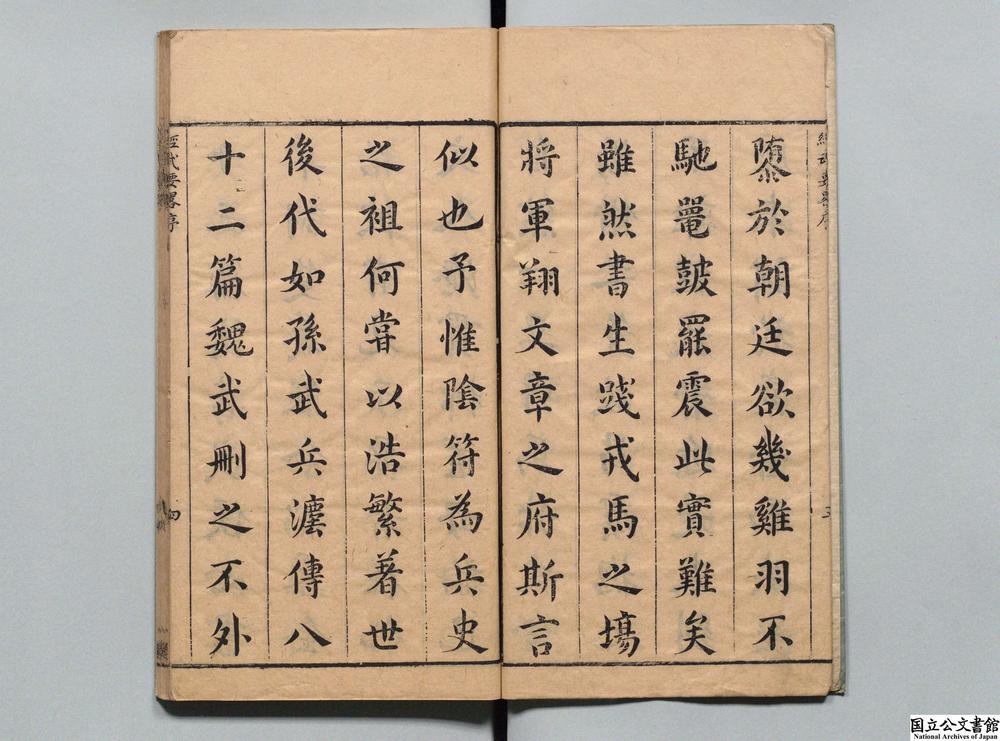 經武要畧序
三
於朝廷欲幾雞羽不
馳鼉皷罷震此實難矣
雖然書生踐戎馬之塲
將軍翔文章之府斯言
似也予惟陰符為兵史
之祖何甞以浩繁著世
後代如孫武兵灋傳八
十二篇魏武刪之不外
經武要畧序
四
国立公文書館
National Archives of Japan